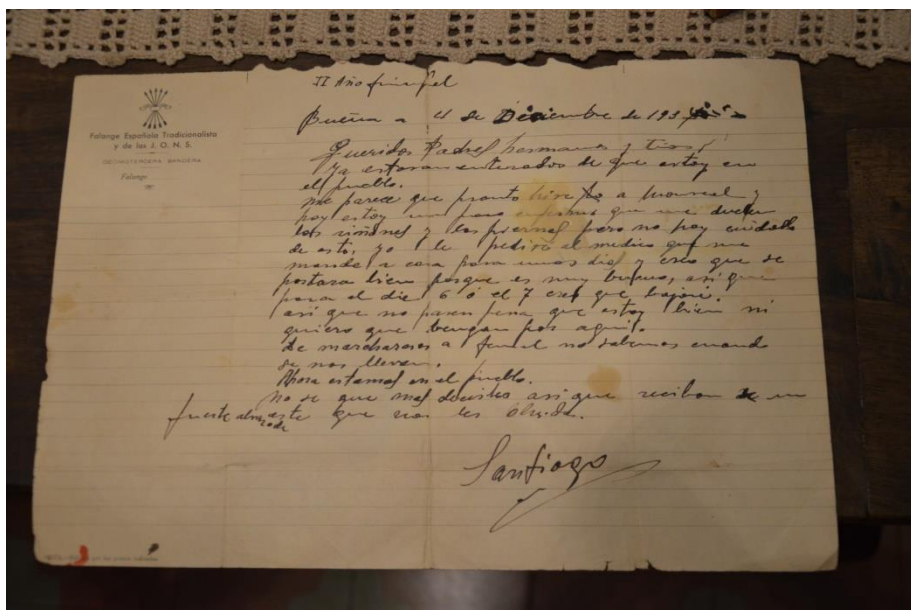 Falange Española Tradicionalista
y de las J. O. N. S.
DECIMOTERCERA BANDERA
Falange
II Año
Bueña a 4 de Diciembre de 193
Queridos Padres hermanos y tios,
Ya estaran enterados de que estoy en
el pueblo.
me parece que pronto a Monreal y
hoy estoy un poco que me duelen
los riñones y las piernas pero no hay cuidado
de esto, yo le pediré al medico que me
mande a casa para unos dias y creo que se
portara bien porque es muy bueno, asi que
para el dia 6 ó el 7 creo que bajaré.
asi que no pasen pena que estoy bien ni
quiero que bengan por aqui.
de marcharnos a Teruel no sabemos cuando
se nos lleven.
Ahora estamos en el pueblo.
no se que mas decirles asi que reciban un
fuerte abrazo de este que no les olvida.
Santiago